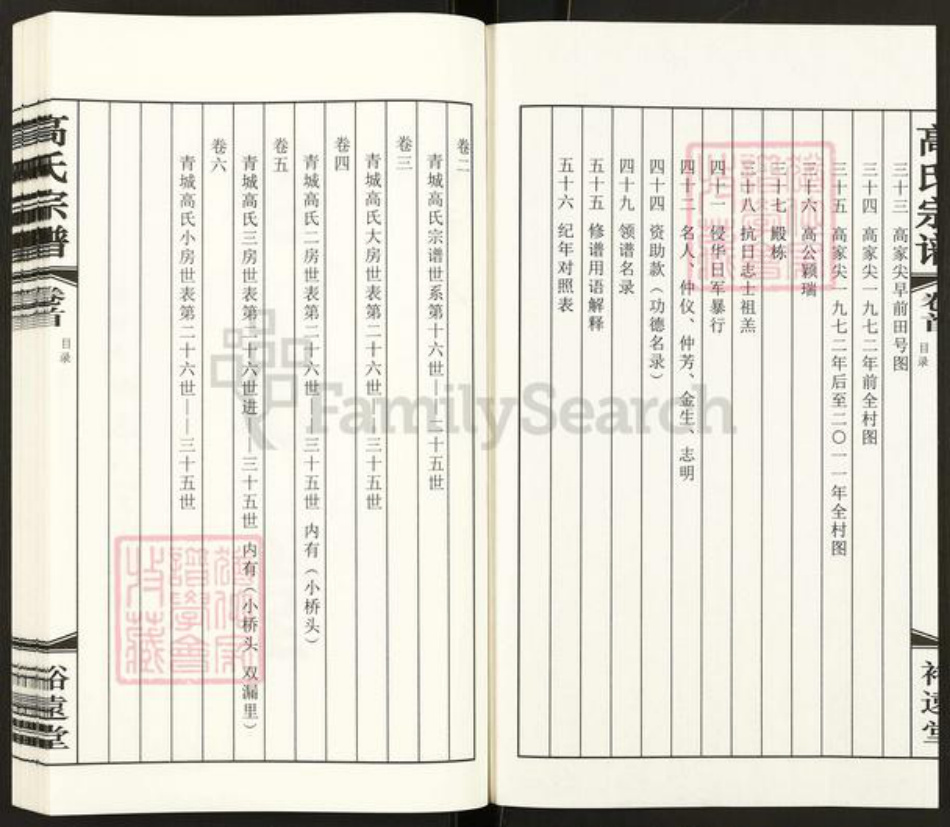 高氏宗谱
卷首
目录
裕远堂
三十三 高家尖早前田号图
三十四 高家尖一九七二年前全村图
三十五 高家尖一九七二年后至二〇一一年全村图
三十六 高公颖瑞
三十七 殿栋
三十八 抗日志士祖羔
四十一 侵华日军暴行
四十二 名人、仲仪、仲芳、金生、志明
四十四 资助款（功德名录）
四十九 领谱名录
五十五 修谱用语解释
五十六 纪年对照表
卷二
青城高氏宗谱世系第十六世——二十五世
卷三
青城高氏大房世表第二十六世——三十五世
卷四
青城高氏二房世表第二十六世——三十五世 内有（小桥头）
卷五
青城高氏三房世表第二十六世进——三十五世 内有（小桥头 双漏里）
卷六
青城高氏小房世表第二十六世——三十五世
高氏宗谱
卷首
目录
裕远堂
FamilySearch